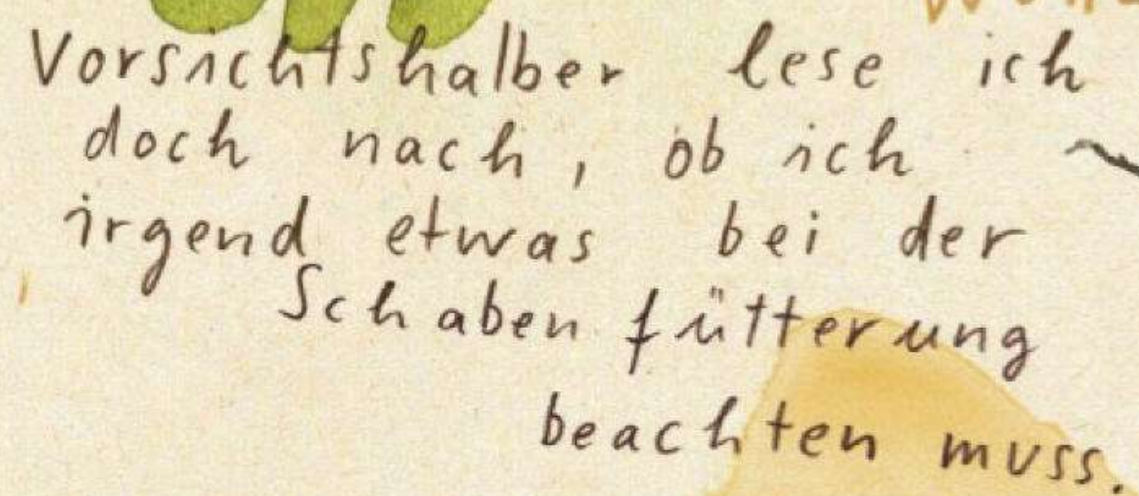 Vorsichtshalber lese ich
doch nach, ob ich
irgend etwas bei der
Schabenfütterung
beachten muss.